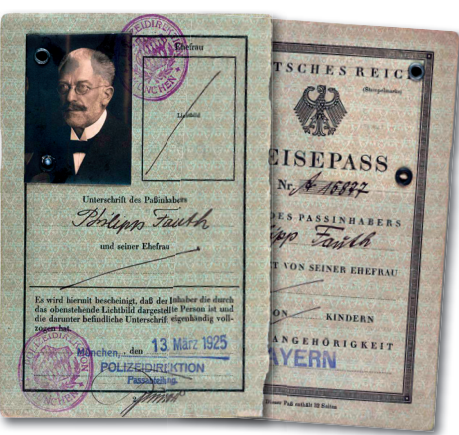 POLIZEIDIREKTION
MÜNCHEN
Ehefrau
Lichtbild
Unterschrift des Paßinhabers
Philipp Fauth
und seiner Ehefrau
Es wird hiermit bescheinigt, daß der Inhaber die durch
das obenstehende Lichtbild dargestellte Person ist und
die darunter befindliche Unterschrift eigenhändig voll-
zogen hat.
München, den 13. März 1925
POLIZEIDIREKTION
Passabteilung.
POLIZEIDIREKTION
MÜNCHEN
TSCHES REIC
(Stempelmarke)
EISEPASS
Nr. A 15827
DES PASSINHABERS
ipp Fauth
T VON SEINER EHEFRAU
ON KINDERN
ANGEHÖRIGKEIT
AYERN
Dieser Paß enthält 32 Seiten